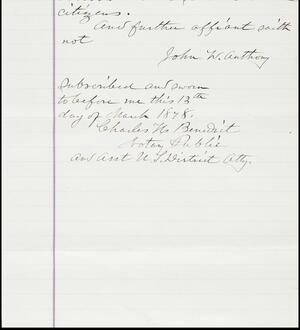 citizens.
And further affiant saith
not
John W. Anthony
Subscribed and sworn
to before me this 13th
day of March 1878.
Charles H. Benedict
Notary Public
and Asst U.S. District Atty.